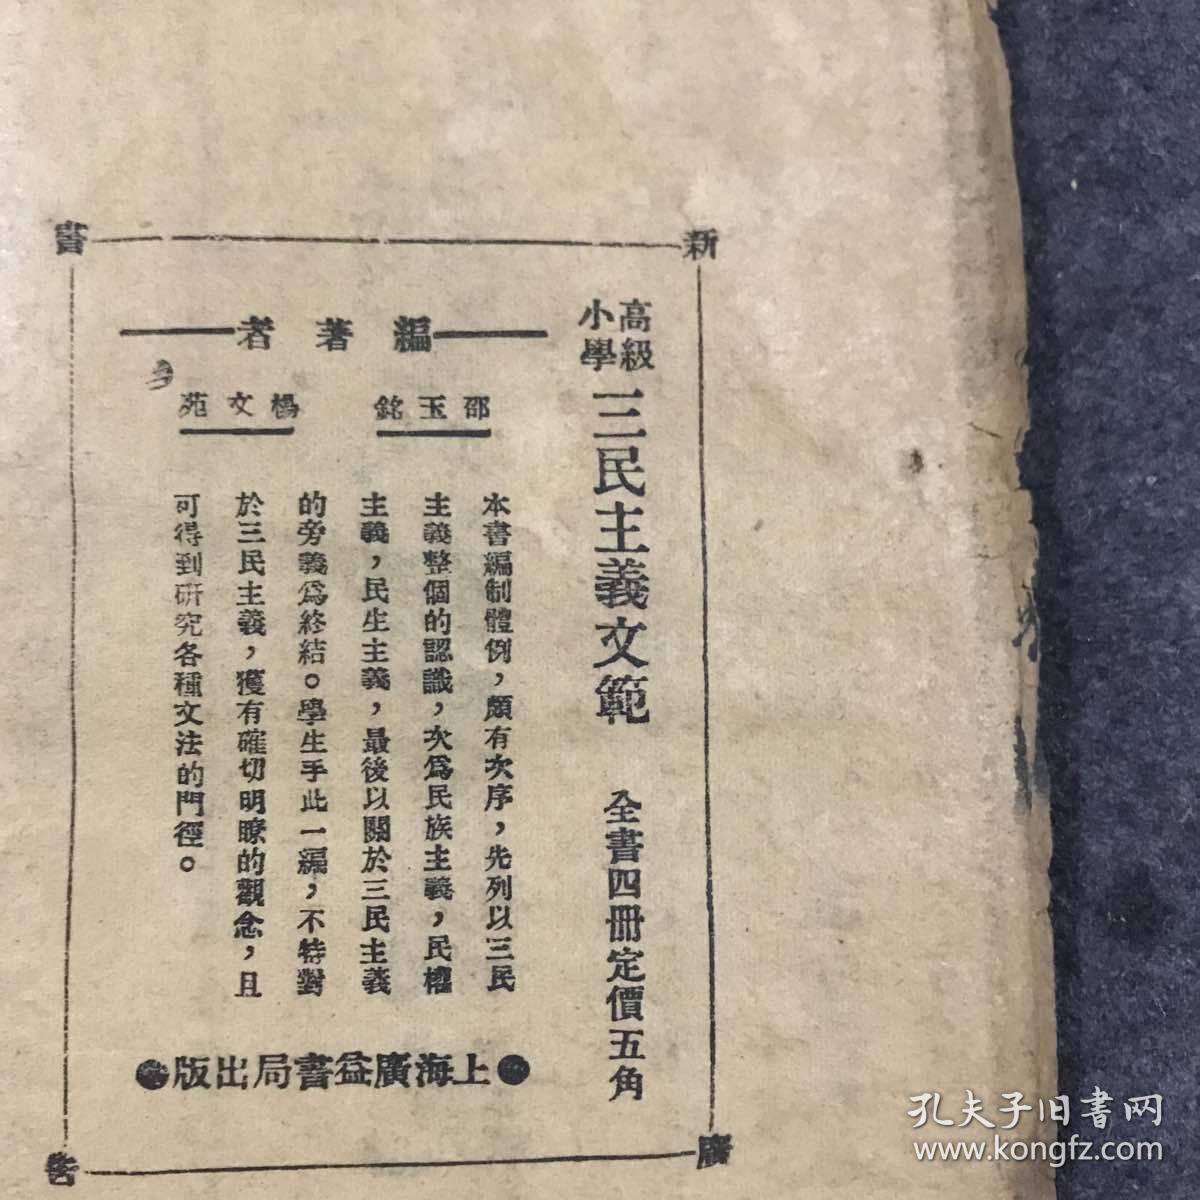 新書廣告
高級小學
三民主義文範
全書四冊定價五角
編著者
邵玉銘
楊文苑
本書編制體例，頗有次序，先列以三民
主義整個的認識，次爲民族主義，民權
主義，民生主義，最後以關於三民主義
的旁義爲終結。學生手此一編，不特對
於三民主義，獲有確切明瞭的觀念，且
可得到研究各種文法的門徑。
●上海廣益書局出版●
孔夫子旧書网
www.kongfz.com